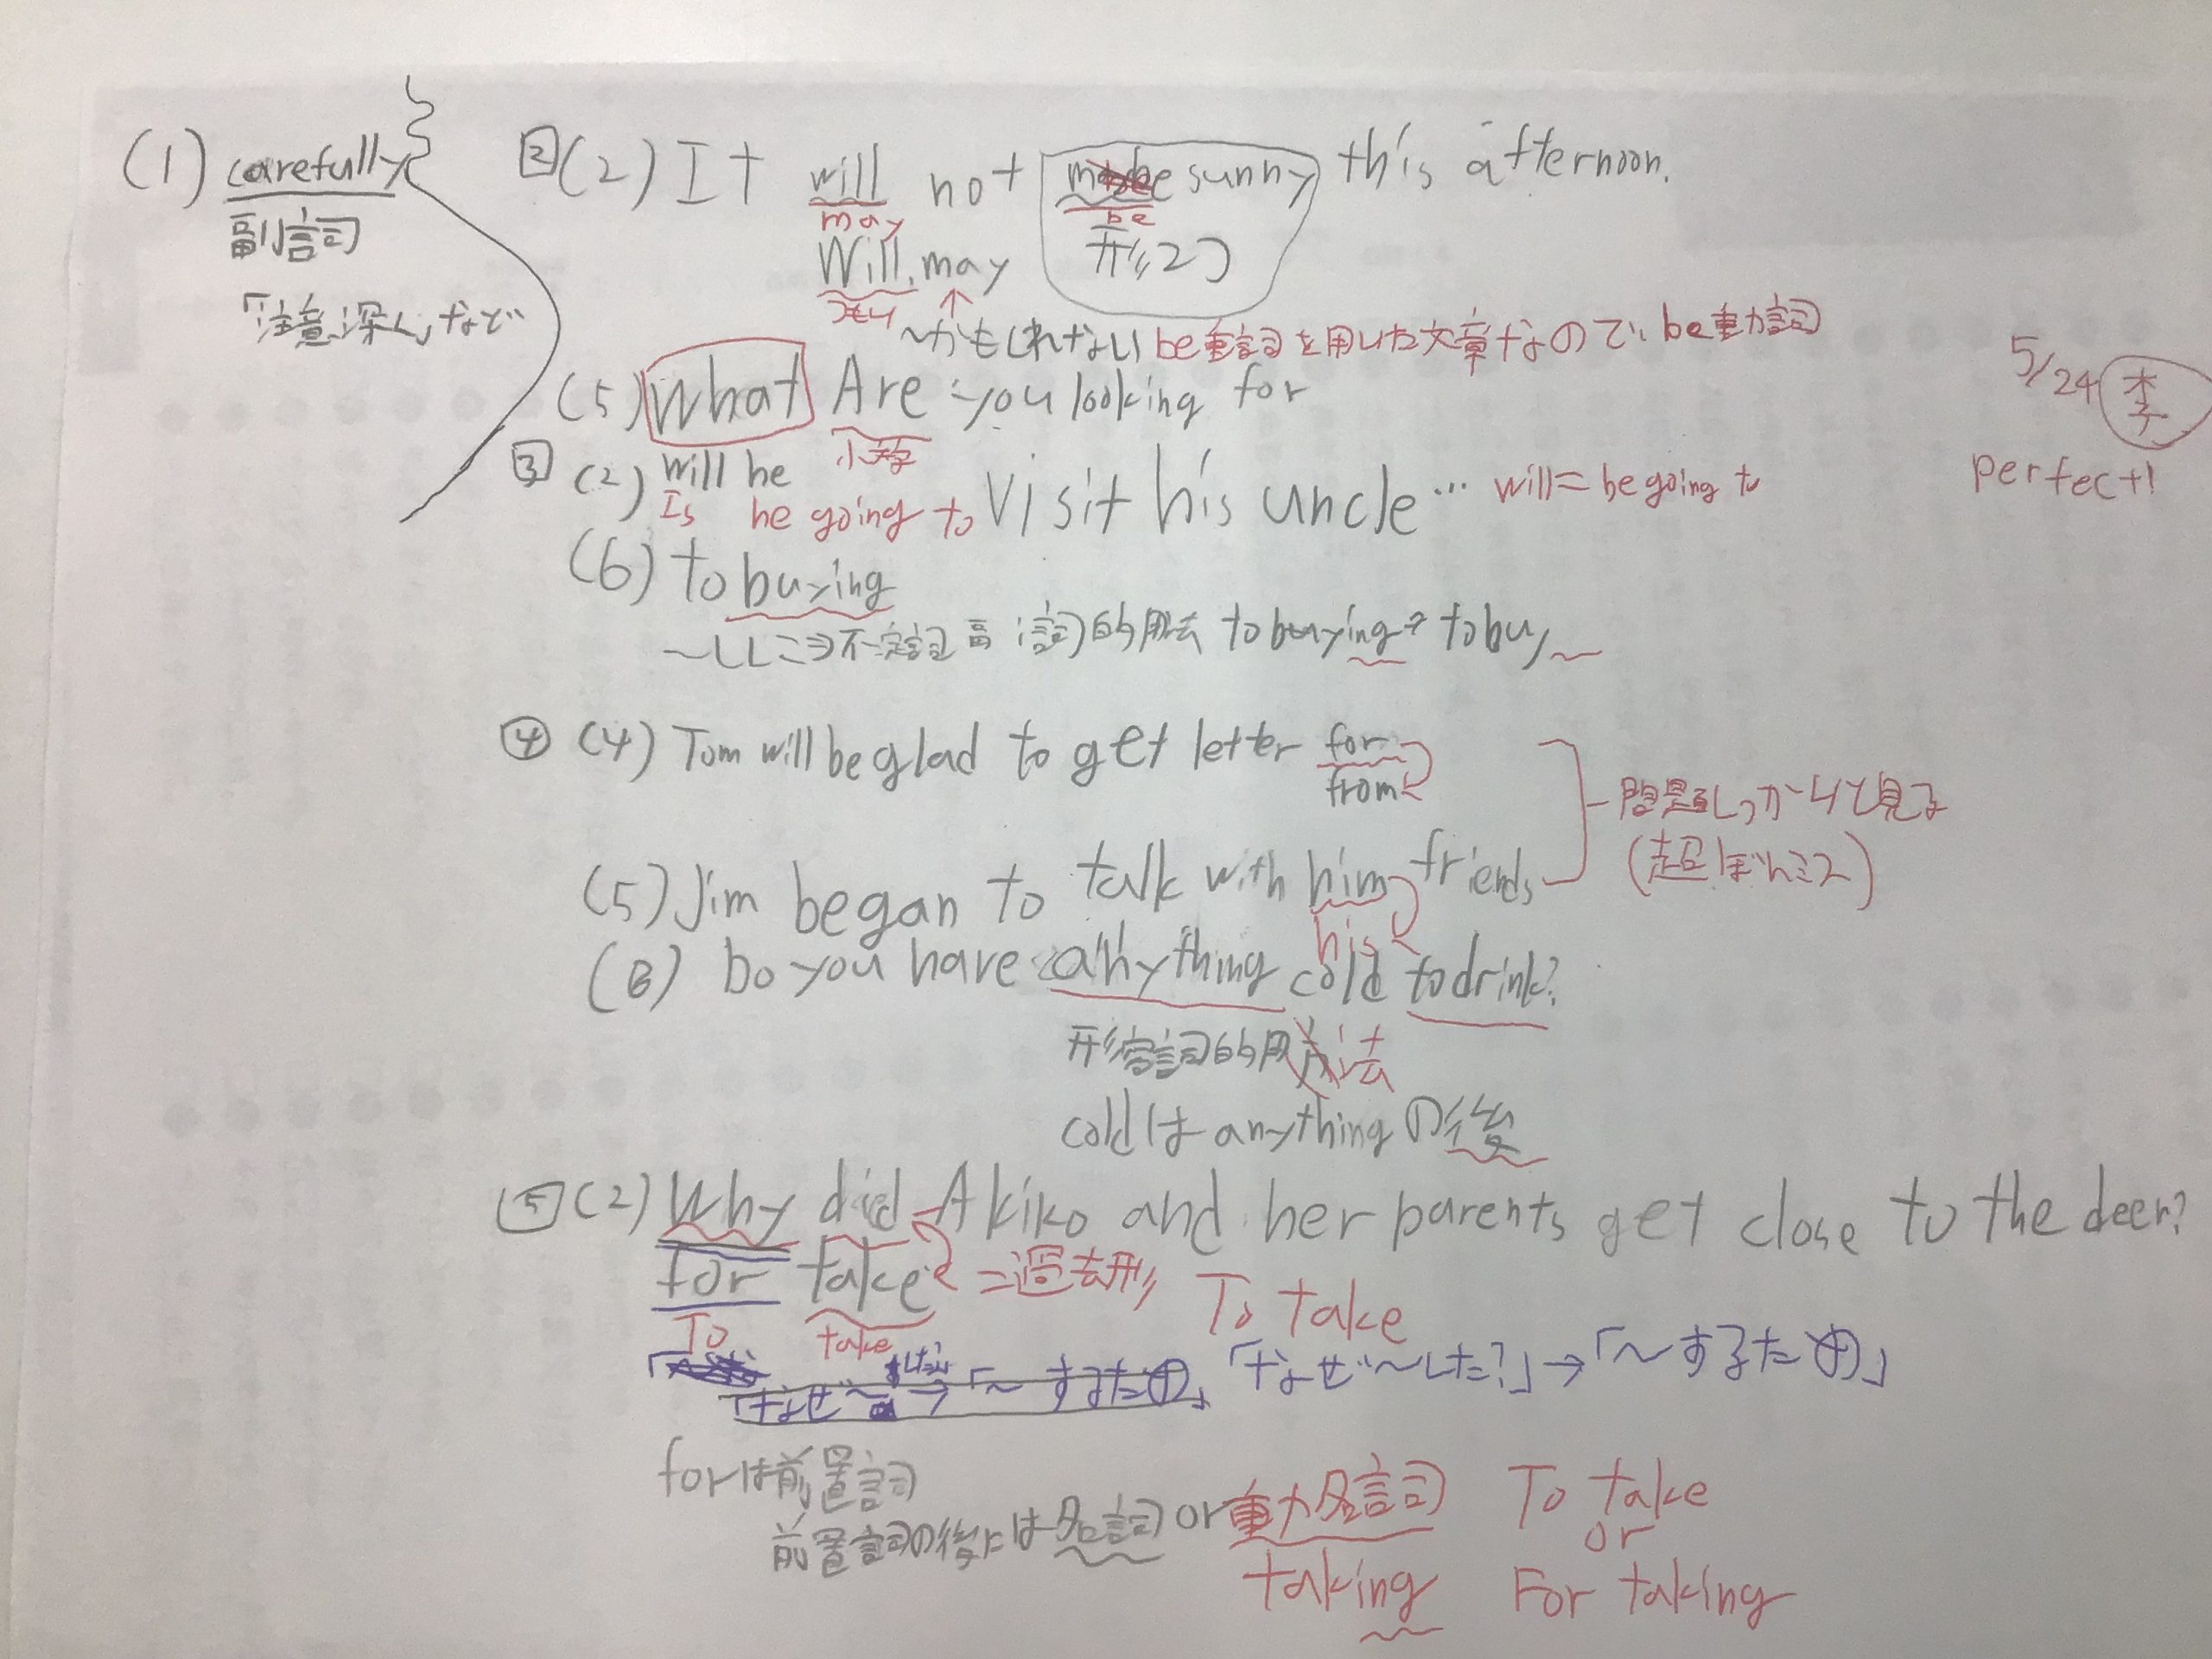 (1) carefully
副詞
「注意深く」など
2 (2) It will not maybe sunny this afternoon.
may be
Will, may 形2つ
〜かもしれない be動詞を用いた文章なので、be動詞
(5) What Are you looking for
小文字
5/24 李
perfect!
3 (2) will he visit his uncle… will = be going to
Is he going to
(6) to buying
〜しに⇒不定詞 副詞的用法 to buying → to buy
4 (4) Tom will be glad to get letter for
from
問題しっかりと見る
(超ぼんミス)
(5) Jim began to talk with him friends
his
(6) Do you have anything cold to drink?
形容詞的用法
coldは anythingの後
5 (2) Why did Akiko and her parents get close to the deer?
for take = 過去形 To take
To take
「なぜ〜した → 「〜するため」 「なぜ〜した?」→「〜するため」
forは前置詞
前置詞の後には名詞 or 動名詞 To take
or
taking For taking